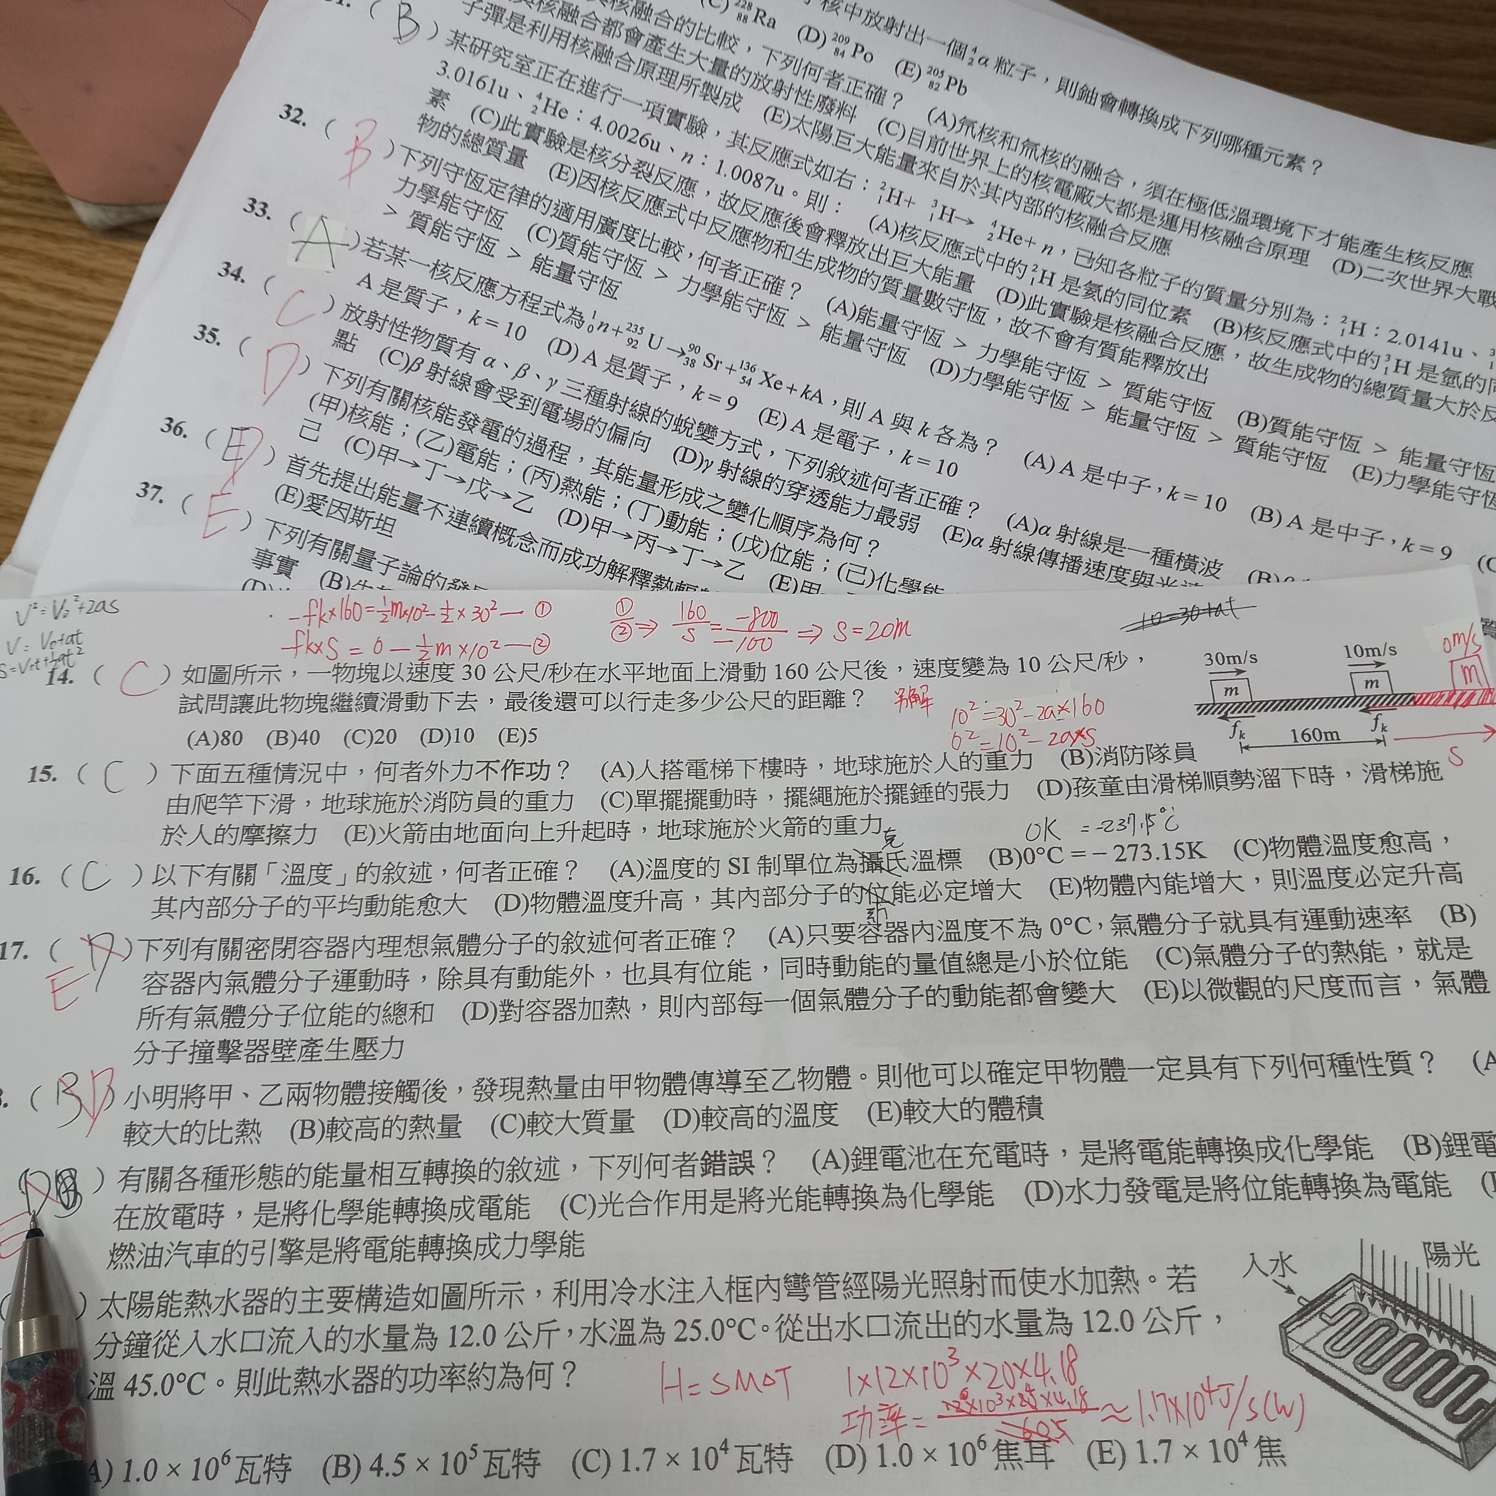 核中放射出一個⁴₂α粒子，則鈾會轉換成下列哪種元素？
²²⁸₈₈Ra (D)²⁰⁹₈₄Po (E)²⁰⁵₈₂Pb
核融合的比較，下列何者正確？ (A)氘核和氚核的融合，須在極低溫環境下才能產生核反應
核融合都會產生大量的放射性廢料 (C)目前世界上的核電廠大都是運用核融合原理 (D)二次世界大戰
子彈是利用核融合原理所製成 (E)太陽巨大能量來自於其內部的核融合反應
(B)某研究室正在進行一項實驗，其反應式如右：²₁H+ ³₁H→ ⁴₂He+n，已知各粒子的質量分別為：²₁H：2.0141u、
3.0161u、⁴₂He：4.0026u、n：1.0087u。則： (A)核反應式中的²₁H是氦的同位素 (B)核反應式中的³₁H是氫的同
素 (C)此實驗是核分裂反應，故反應後會釋放出巨大能量 (D)此實驗是核融合反應，故生成物的總質量大於反
物的總質量 (E)因核反應式中反應物和生成物的質量數守恆，故不會有質能釋放出
32. (B)下列守恆定律的適用廣度比較，何者正確？ (A)能量守恆＞力學能守恆＞質能守恆 (B)質能守恆＞能量守恆
力學能守恆 (C)質能守恆＞力學能守恆＞能量守恆 (D)力學能守恆＞能量守恆＞質能守恆 (E)力學能守恆
＞質能守恆＞能量守恆
33. (A)若某一核反應方程式為¹₀n+²³⁵₉₂U→⁹⁰₃₈Sr+¹³⁶₅₄Xe+kA，則A與k各為？ (A)A是中子，k=10 (B)A是中子，k=9
A是質子，k=10 (D)A是質子，k=9 (E)A是電子，k=10
34. (C)放射性物質有α、β、γ三種射線的蛻變方式，下列敘述何者正確？ (A)α射線是一種橫波
點 (C)β射線會受到電場的偏向 (D)γ射線的穿透能力最弱 (E)α射線傳播速度與光
35. (D)下列有關核能發電的過程，其能量形成之變化順序為何？
(甲)核能；(乙)電能；(丙)熱能；(丁)動能；(戊)位能；(己)化學能
己 (C)甲→丁→戊→乙 (D)甲→丙→丁→乙 (E)甲
36. (E)首先提出能量不連續概念而成功解釋熱輻
(E)愛因斯坦
37. (E)下列有關量子論的發
事實
V²=V₀²+2as
V=V₀+at
S=V₀t+½at²
-fk×160=½m×10²-½×30²—①
fk×S=0-½m×10²—②
①/②⇒ 160/S=-800/-100 ⇒ S=20m
10=30+at
14. (C)如圖所示，一物塊以速度30公尺/秒在水平地面上滑動160公尺後，速度變為10公尺/秒，
試問讓此物塊繼續滑動下去，最後還可以行走多少公尺的距離？
(A)80 (B)40 (C)20 (D)10 (E)5
另解
10²=30²-2a×160
0²=10²-2a×S
30m/s 10m/s 0m/s
m m m
fk fk
160m S
15. (C)下面五種情況中，何者外力不作功？ (A)人搭電梯下樓時，地球施於人的重力 (B)消防隊員
由爬竿下滑，地球施於消防員的重力 (C)單擺擺動時，擺繩施於擺錘的張力 (D)孩童由滑梯順勢溜下時，滑梯施
於人的摩擦力 (E)火箭由地面向上升起時，地球施於火箭的重力
克
0K =-237.15℃
16. (C)以下有關「溫度」的敘述，何者正確？ (A)溫度的SI制單位為攝氏溫標 (B)0°C=－273.15K (C)物體溫度愈高，
其內部分子的平均動能愈大 (D)物體溫度升高，其內部分子的位能必定增大 (E)物體內能增大，則溫度必定升高
動
17. (E)下列有關密閉容器內理想氣體分子的敘述何者正確？ (A)只要容器內溫度不為0°C，氣體分子就具有運動速率 (B)
容器內氣體分子運動時，除具有動能外，也具有位能，同時動能的量值總是小於位能 (C)氣體分子的熱能，就是
所有氣體分子位能的總和 (D)對容器加熱，則內部每一個氣體分子的動能都會變大 (E)以微觀的尺度而言，氣體
分子撞擊器壁產生壓力
(B D)小明將甲、乙兩物體接觸後，發現熱量由甲物體傳導至乙物體。則他可以確定甲物體一定具有下列何種性質？ (A
較大的比熱 (B)較高的熱量 (C)較大質量 (D)較高的溫度 (E)較大的體積
)有關各種形態的能量相互轉換的敘述，下列何者錯誤？ (A)鋰電池在充電時，是將電能轉換成化學能 (B)鋰電
在放電時，是將化學能轉換成電能 (C)光合作用是將光能轉換為化學能 (D)水力發電是將位能轉換為電能
燃油汽車的引擎是將電能轉換成力學能
)太陽能熱水器的主要構造如圖所示，利用冷水注入框內彎管經陽光照射而使水加熱。若
分鐘從入水口流入的水量為12.0公斤，水溫為25.0°C。從出水口流出的水量為12.0公斤，
溫45.0°C。則此熱水器的功率約為何？
入水 陽光
H=SM△T 1×12×10³×20×4.18
功率= ≈1.7×10⁴J/s(W)
A) 1.0×10⁶瓦特 (B) 4.5×10⁵瓦特 (C) 1.7×10⁴瓦特 (D) 1.0×10⁶焦耳 (E) 1.7×10⁴焦